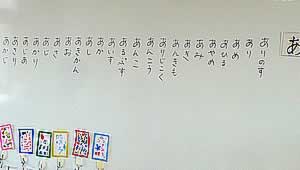 あ
ありのす
あり
あめ
あひる
あやめ
あみ
あき
あんきも
ありじごく
あんこう
あんこ
あるぷす
あいす
あか
あし
あきかん
あお
あさ
あじ
あかり
あじあ
あさり
あかじ